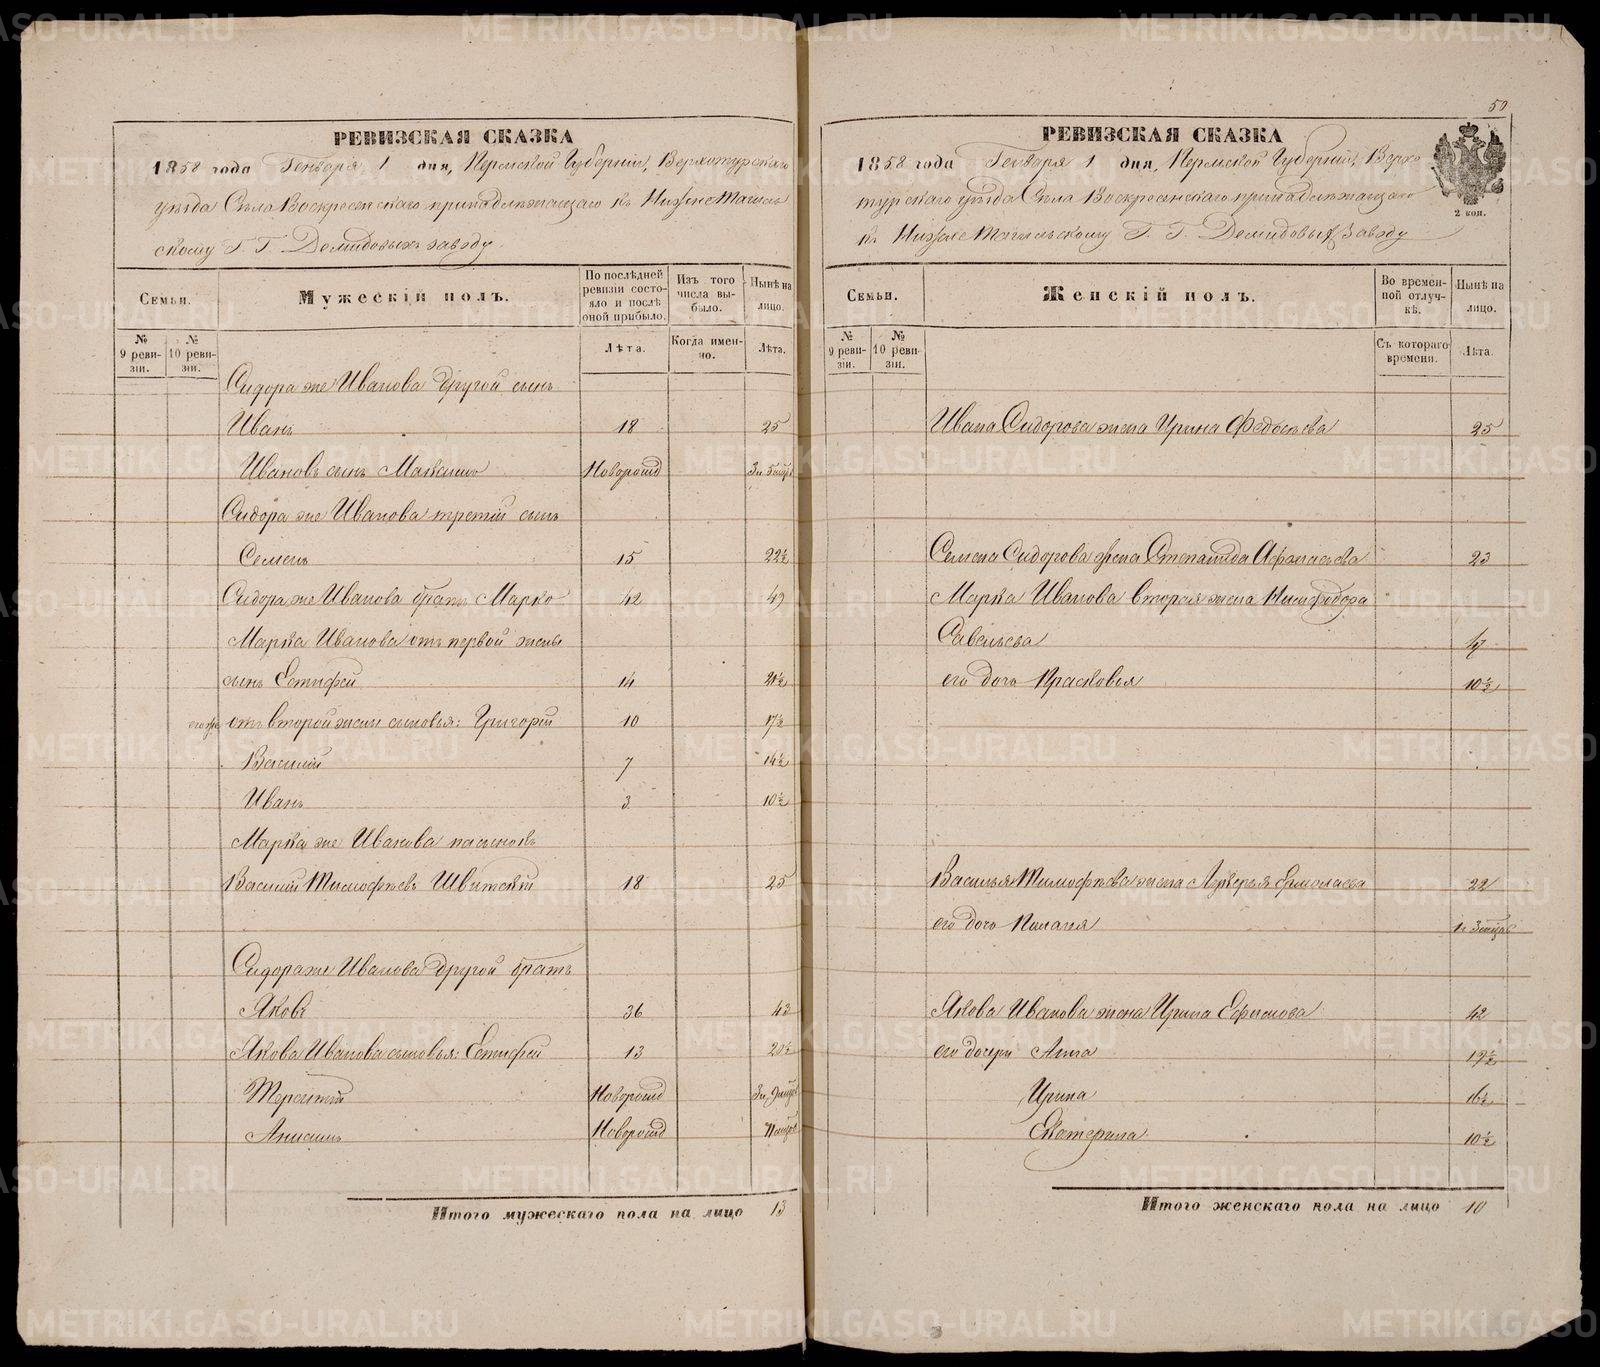 РЕВИЗСКАЯ СКАЗКА
1858 года Генваря 1 дня, Пермской Губерніи, Верхотурскаго
уѣзда Села Воскресенскаго принадлежащаго къ Нижне Тагиль
скому Г. Г. Демидовыхъ заводу
Семьи.
Мужескій полъ.
По послѣдней ревизіи состояло и послѣ оной прибыло.
Изъ того числа выбыло.
Нынѣ на лицо.
№ 9 ревизіи.
№ 10 ревизіи.
Лѣта.
Когда именно.
Лѣта.
Сидора же Иванова другой сынъ
Иванъ 18 25
Ивановъ сынъ Максимъ Новорожд
Сидора же Иванова третій сынъ
Семенъ 15 22½
Сидора же Иванова братъ Марко 42 49
Марка Иванова отъ первой жены
сынъ Естифей 14 21½
его же отъ второй жены сыновья: Григорій 10 17½
Василій 7 14½
Иванъ 3 10½
Марка же Иванова пасынокъ
Василій Тимофѣевъ 18 25
Сидора же Иванова другой братъ
Яковъ 36 43
Якова Иванова сыновья: Естифей 13 20½
Терентій Новорожд
Анисимъ Новорожд
Итого мужескаго пола на лицо 13
50
РЕВИЗСКАЯ СКАЗКА
1858 года Генваря 1 дня, Пермской Губерніи, Верхо
турскаго уѣзда Села Воскресенскаго принадлежащаго
къ Нижне Тагильскому Г. Г. Демидовыхъ Заводу
2 коп.
Семьи.
Женскій полъ.
Во временной отлучкѣ.
Нынѣ на лицо.
№ 9 ревизіи.
№ 10 ревизіи.
Съ котораго времени.
Лѣта.
Ивана Сидорова жена Ирина Федосѣева 25
Семена Сидорова жена Степанида Афанасьева 23
Марка Иванова вторая жена Нимфодора
Савельева 47
его дочь Прасковья 10½
Василья Тимофѣева жена Лукерья Ермолаева 22
его дочь Пилагея
Якова Иванова жена Ирина Ефимова 42
его дочери Анна 19½
Ирина 16½
Екатерина 10½
Итого женскаго пола на лицо 10
METRIKI.GASO-URAL.RU